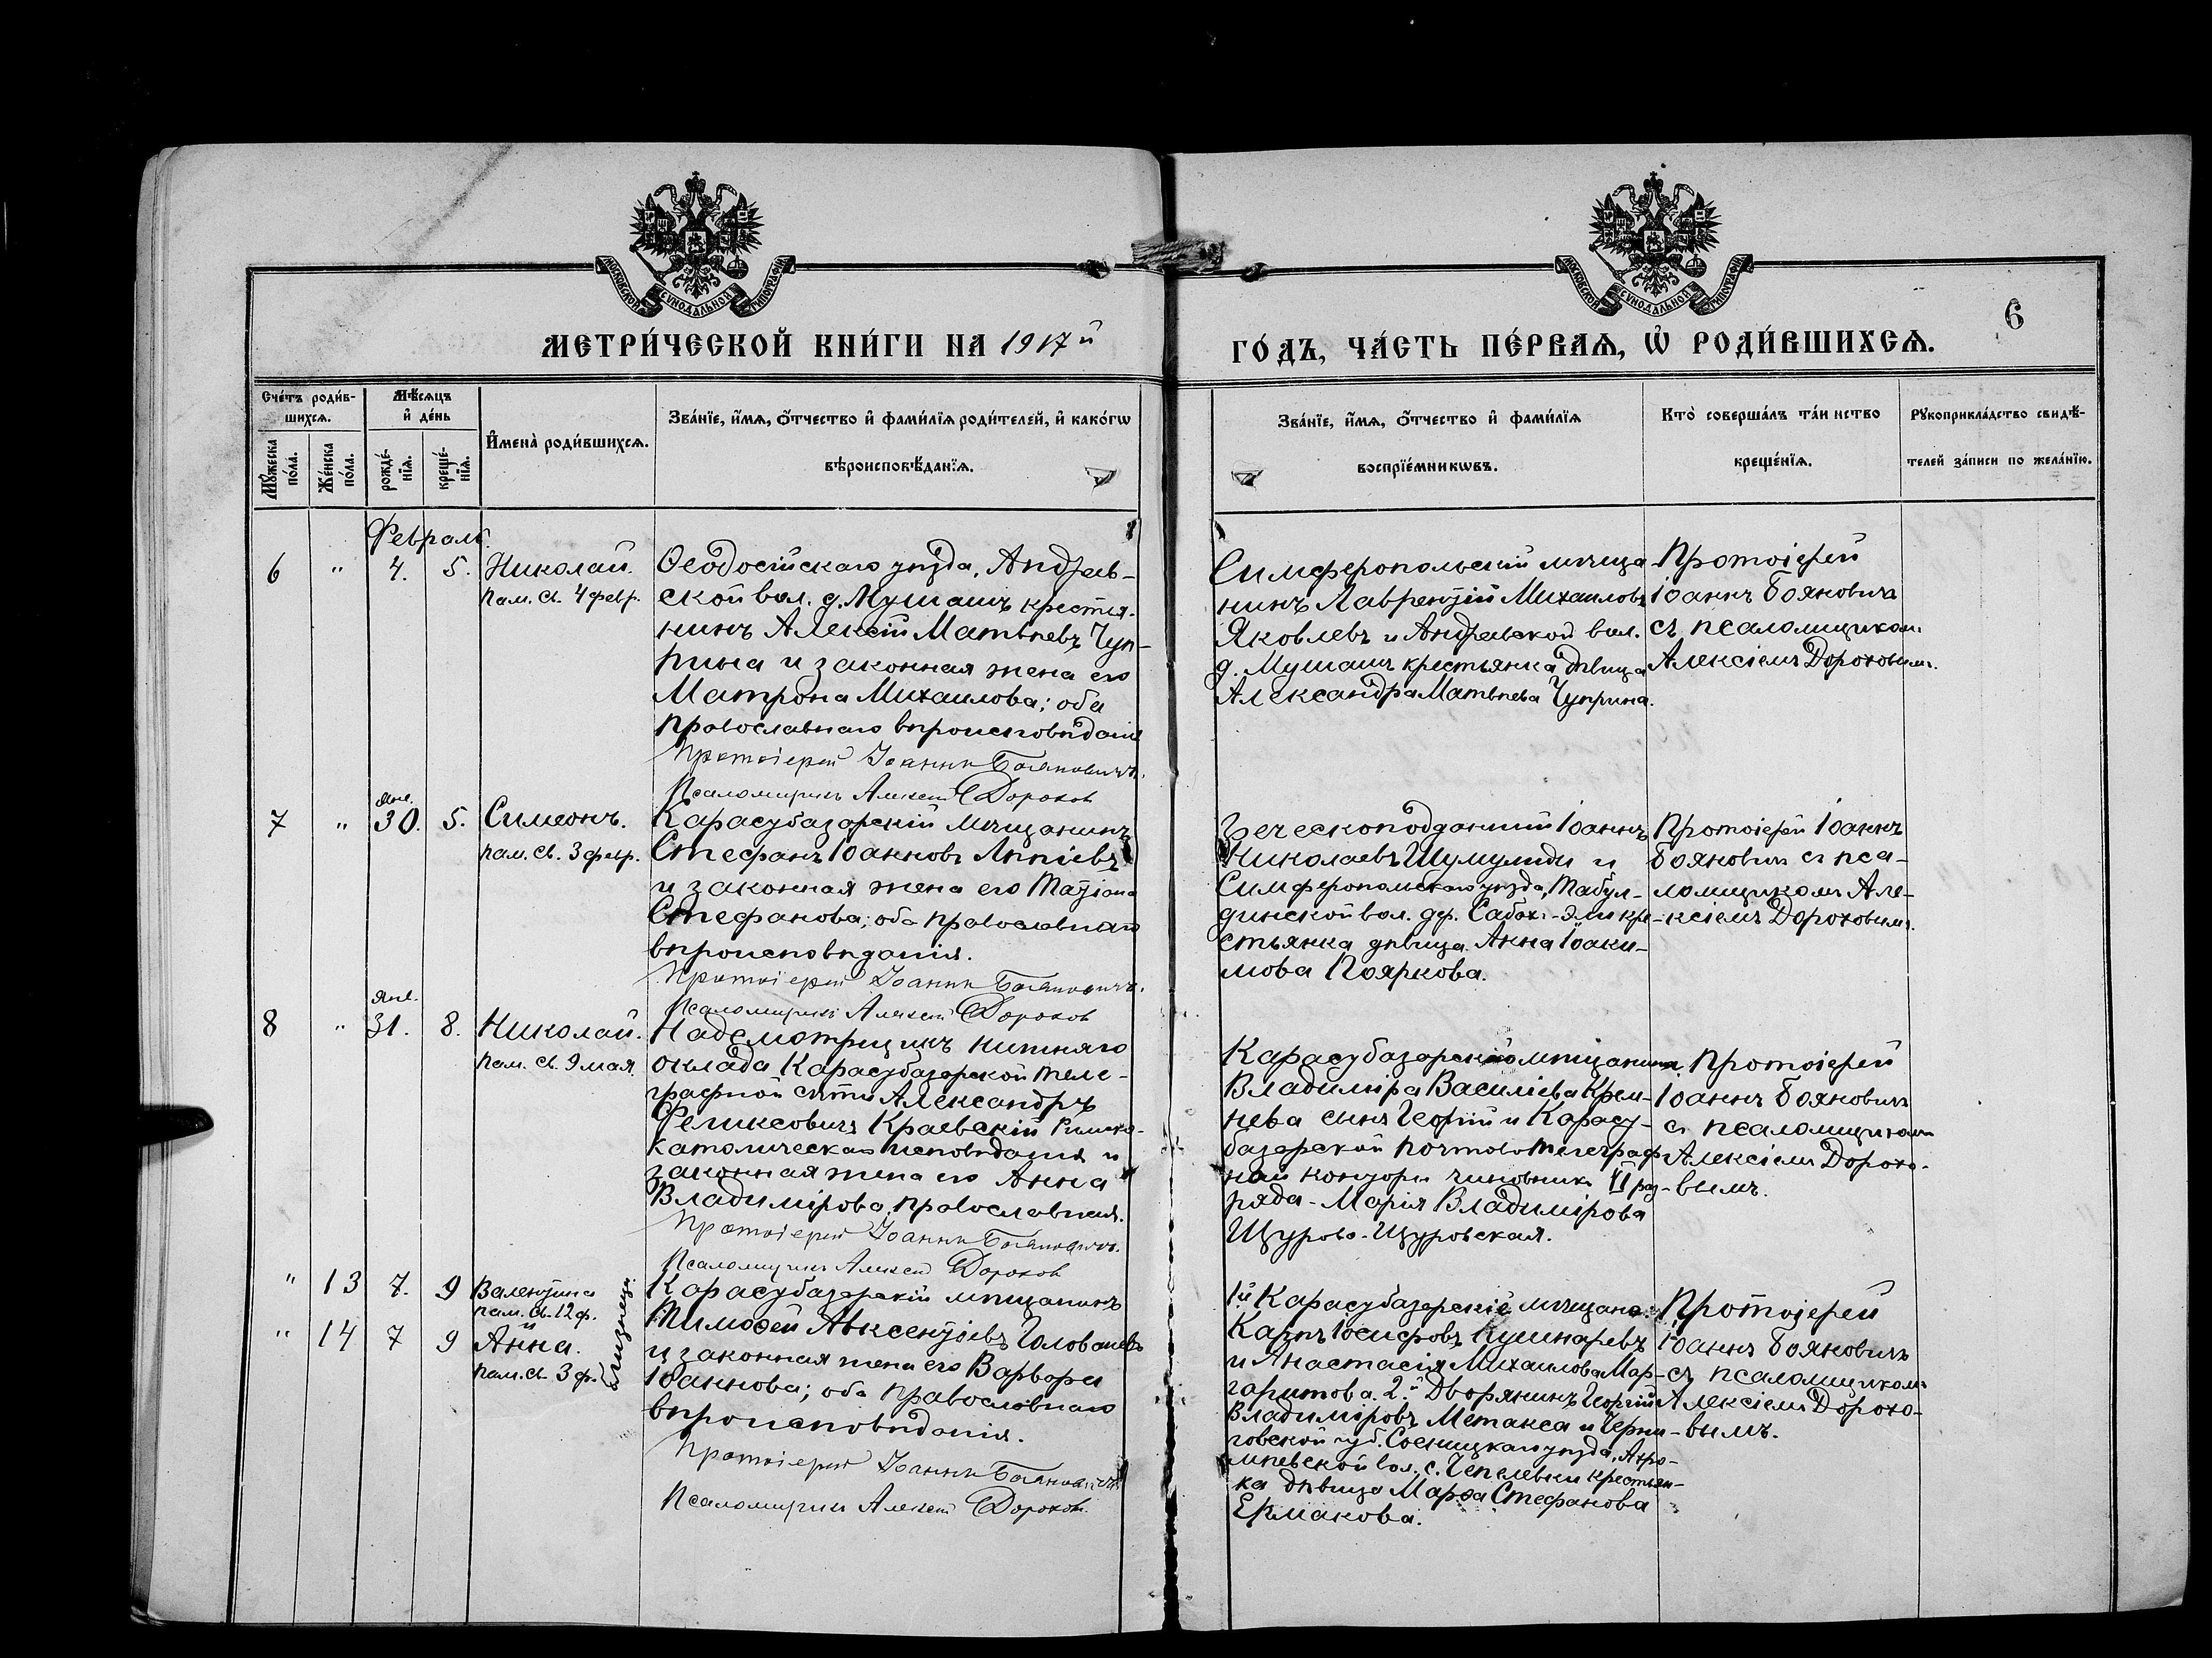 МОСКОВСКОЙ СУНОДАЛЬНОЙ ТИПОГРАФІИ
МОСКОВСКОЙ СУНОДАЛЬНОЙ ТИПОГРАФІИ
6
МЕТРИ́ЧЕСКОЙ КНИ́ГИ НА 1917й
ГО́ДЪ, ЧА́СТЬ ПЕ́РВАѦ, Ѡ҆ РОДИ́ВШИХСѦ.
Сче́тъ роди́в-
шихсѧ.
Мꙋ́жеска по́ла.
Же́нска по́ла.
Мѣ́сѧцъ
и҆ де́нь
рожде́-
нїѧ.
креще́-
нїѧ.
И҆мена̀ роди́вшихсѧ.
Зва́нїе, и҆́мѧ, ѻ҆́тчество и҆ фами́лїѧ роди́телей, и҆ како́гѡ
вѣроисповѣ́данїѧ.
Зва́нїе, и҆́мѧ, ѻ҆́тчество и҆ фами́лїѧ
воспрїе́мникѡвъ.
Кто̀ соверша́лъ та́инство
креще́нїѧ.
Рꙋкоприкла́дство свидѣ́-
телей за́писи по жела́нїю.
Февраль.
6 " 4. 5. Николай.
пам. св. 4 февр.
Ѳеодосійскаго уѣзда, Андреев-
ской вол. д. Мушашъ крестья-
нинъ Алексій Матѳеевъ Чуп-
рина и законная жена его
Матрона Михаилова; оба
православнаго вѣроисповѣданія
Протоіерей Іоаннъ Бояновичъ.
Псаломщикъ Алексій Дорохов
Симферопольскій мѣща-
нинъ Лаврентій Михаиловъ
Яковлевъ и Андреевской вол.
д. Мушашъ крестьянка дѣвица
Александра Матѳеева Чуприна.
Протоіерей
Іоаннъ Бояновичъ
съ псаломщикомъ
Алексіемъ Дороховымъ.
7 " Янв. 30. 5. Симеонъ.
пам. св. 3 февр.
Карасубазарскій мѣщанинъ
Стефанъ Іоанновъ Аппіевъ
и законная жена его Маріона
Стефанова; оба православнаго
вѣроисповѣданія.
Протоіерей Іоаннъ Бояновичъ.
Псаломщикъ Алексій Дорохов
Греческоподданный Іоаннъ
Николаевъ Шумулиди и
Симферопольскаго уѣзда, Табул-
динской вол. дер. Сабах-Эли кре-
стьянка дѣвица Анна Іоаки-
мова Пояркова.
Протоіерей Іоаннъ
Бояновичъ съ пса-
ломщикомъ Але-
ксіемъ Дороховымъ.
8 " Янв. 31. 8. Николай.
пам. св. 9 мая.
Надсмотрщикъ нижняго
оклада Карасубазарской теле-
графной сѣти Александръ
Феликсовичъ Краевскій Римско-
католическаго исповѣданія и
законная жена его Анна
Владимірова, православная.
Протоіерей Іоаннъ Бояновичъ.
Псаломщикъ Алексій Дорохов
Карасубазарскаго мѣщанина
Владиміра Василіева Крем-
нева сынъ Георгій и Карасу-
базарской почтово-телеграф-
ной конторы чиновника VI раз-
ряда - Марія Владимірова
Щурово-Щуровская.
Протоіерей
Іоаннъ Бояновичъ
съ псаломщикомъ
Алексіемъ Дорохо-
вымъ.
" 13 7. 9 Валентина
пам. св. 12 ф.
и
" 14 7 9 Анна.
пам. св. 3 ф.
близнецы.
Карасубазарскій мѣщанинъ
Тимоѳей Авксентіевъ Головачевъ
и законная жена его Варвара
Іоаннова; оба православнаго
вѣроисповѣданія.
Протоіерей Іоаннъ Бояновичъ
Псаломщикъ Алексій Дорохов.
1й Карасубазарскіе мѣщане:
Карпъ Іосифовъ Кушнаревъ
и Анастасія Михаилова Мар-
гаритова. 2.й Дворянинъ Георгій
Владиміровъ Метакса и Черни-
говской губ. Сосницкаго уѣзда, Ахра-
мѣевской вол. с. Чепелевки крестьян-
ка дѣвица Марѳа Стефанова
Ермакова.
Протоіерей
Іоаннъ Бояновичъ
съ псаломщикомъ
Алексіемъ Дорохо-
вымъ.